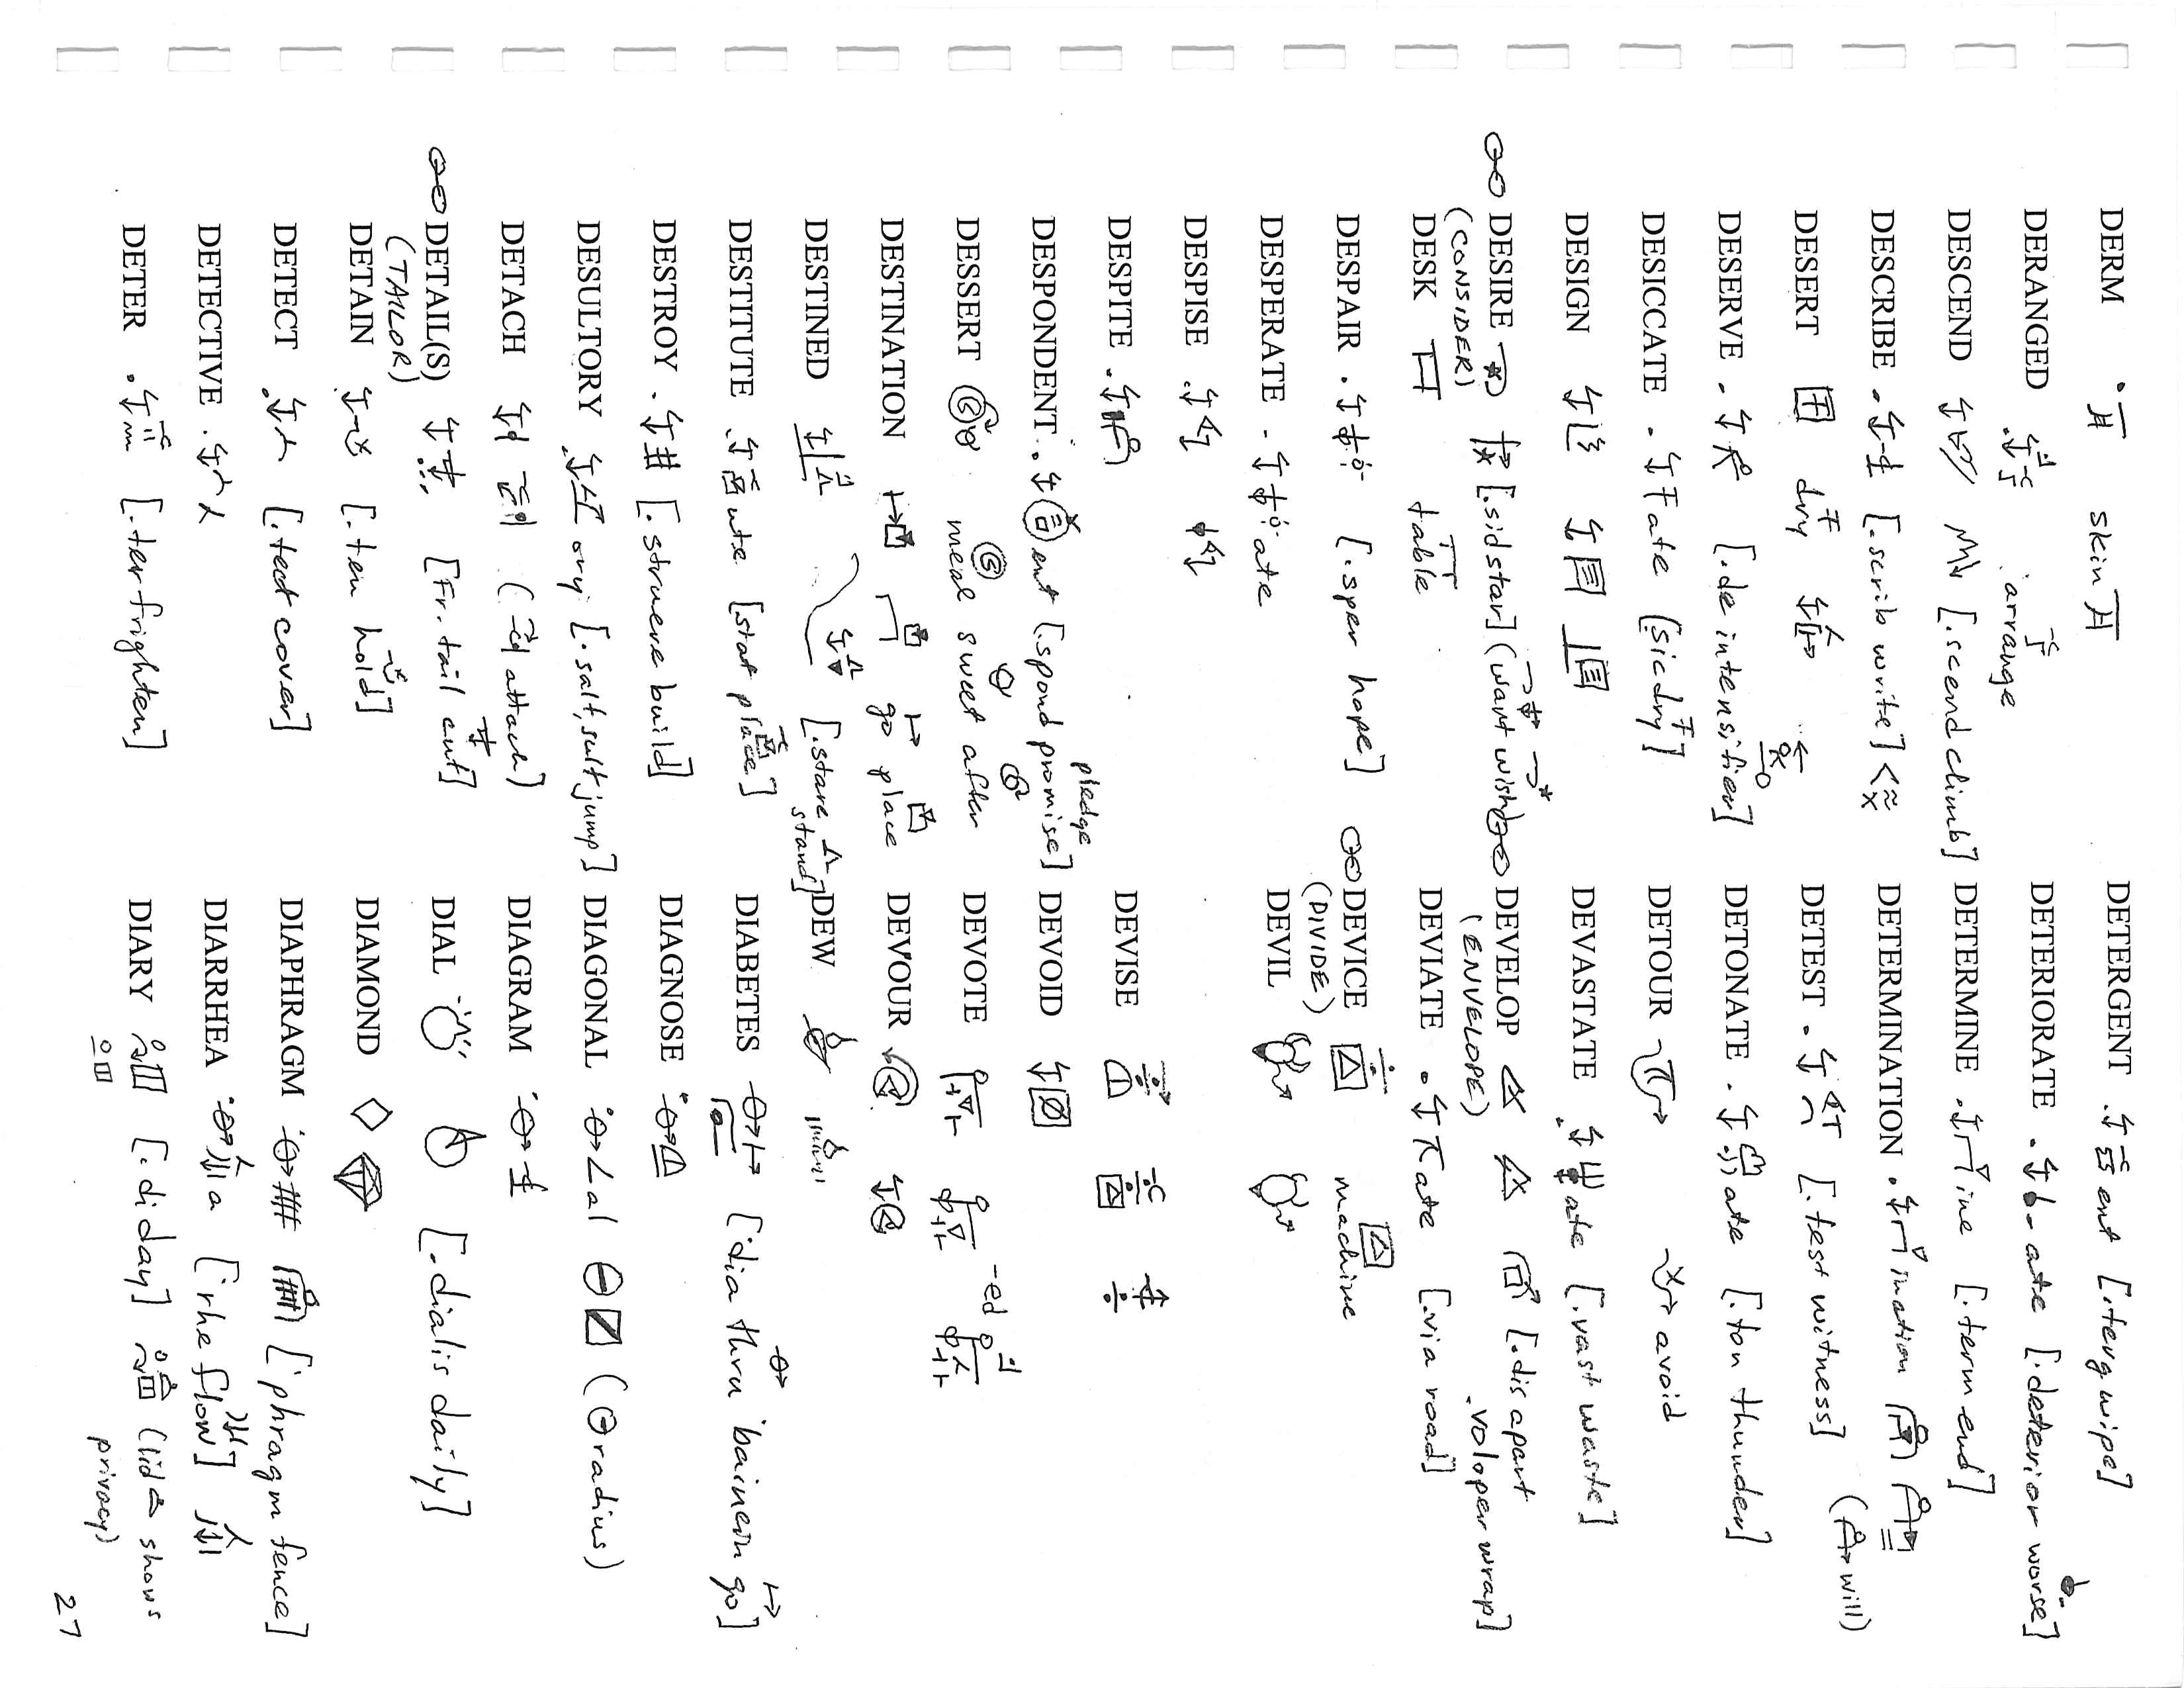 DERM . skin
DERANGED . arrange
DESCEND [.scend climb]
DESCRIBE . [.scrib write]
DESERT dry
DESERVE . [.de intensifier]
DESICCATE . ate [.sic dry]
DESIGN
DESIRE [.sid star] (want wish)
(CONSIDER)
DESK table
DESPAIR . [.sper hope]
DESPERATE . ate
DESPISE .
DESPITE .
pledge
DESPONDENT . ent [.spond promise]
DESSERT meal sweet after
DESTINATION go place
DESTINED [.stare stand]
DESTITUTE . ute [stat place]
DESTROY . [.struere build]
DESULTORY . ory [.salt, sult jump]
DETACH (attach)
DETAIL(S) [Fr. tail cut]
(TAILOR)
DETAIN [.ten hold]
DETECT . [.tect cover]
DETECTIVE .
DETER . [.ter frighten]
DETERGENT . ent [.terg wipe]
DETERIORATE . ate [.deterior worse]
DETERMINE . ine [.term end]
DETERMINATION . ination (will)
DETEST . [.test witness]
DETONATE . ate [.ton thunder]
DETOUR avoid
DEVASTATE . ate [.vast waste]
DEVELOP [.dis apart
(ENVELOPE) .voloper wrap]
DEVIATE . ate [.via road]
DEVICE machine
(DIVIDE)
DEVIL
DEVISE
DEVOID
DEVOTE -ed
DEVOUR
DEW
DIABETES ['dia thru 'bainein go]
DIAGNOSE
DIAGONAL al (radius)
DIAGRAM
DIAL [.dialis daily]
DIAMOND
DIAPHRAGM ['phragm fence]
DIARRHEA a ['rhe flow]
DIARY [.di day] (lid shows
privacy)
27